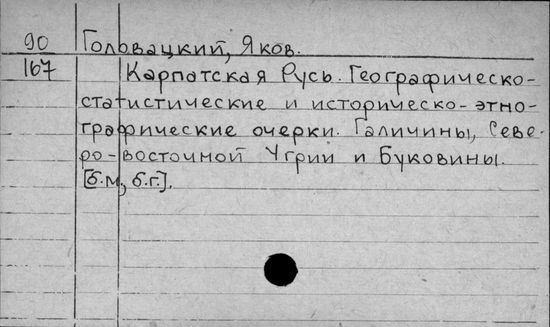 90 Головацкий, Яков.
167 Карпатская Русь. Географическо-
статистические и историческо-этно-
графические очерки. Галичины, Севе-
ро-восточной Угрии и Буковины.
[б.м, б.г.].